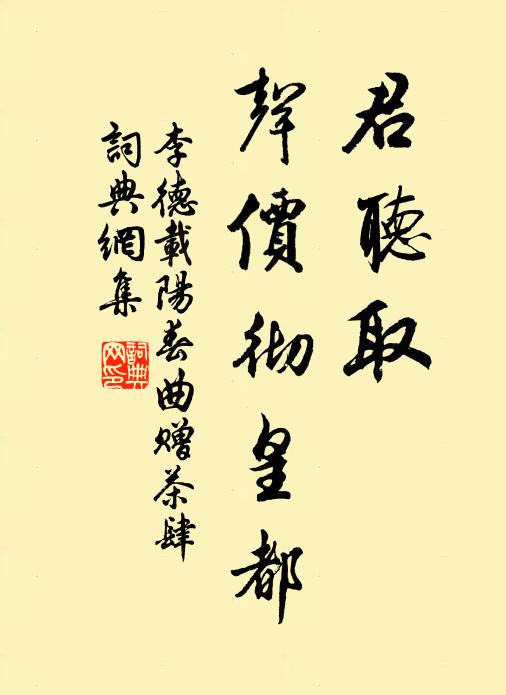 君聽取
聲價彻皇都
李德載陽春曲贈茶肆
詞典網集
詞典网印